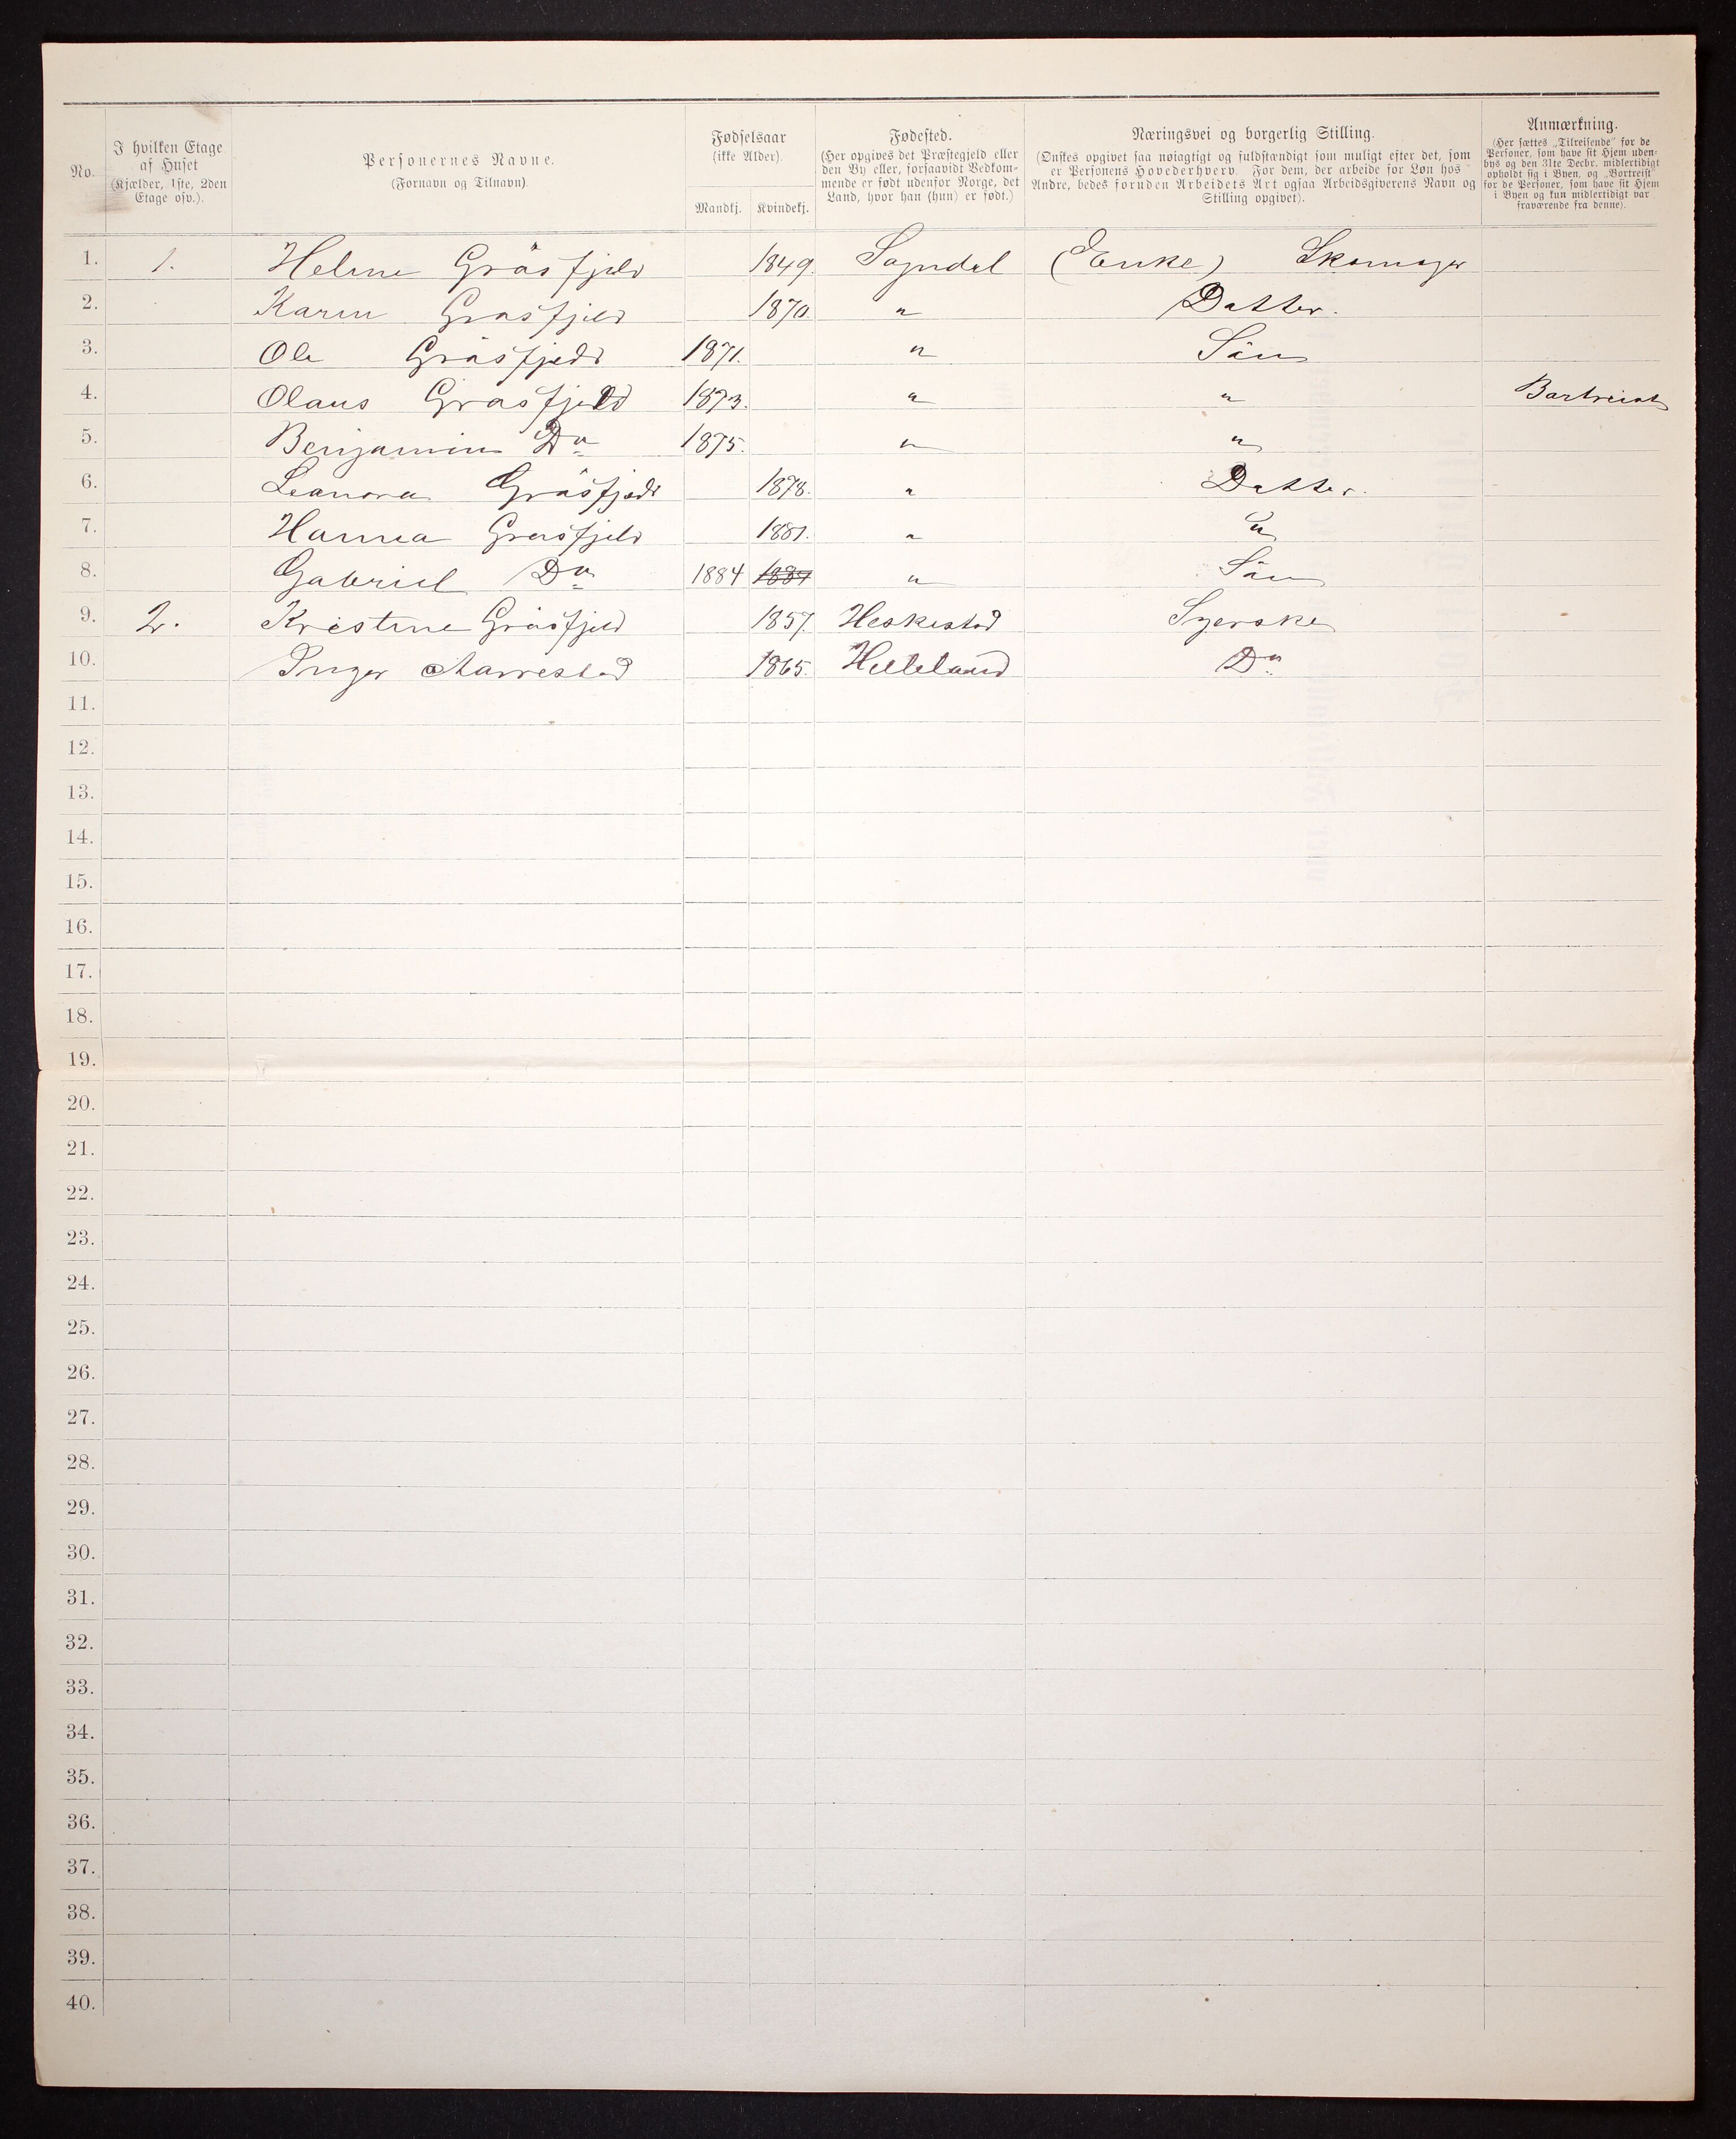 No.
I hvilken Etage
af Huset
(Kjælder, 1ste, 2den
Etage osv.).
Personernes Navne.
(Fornavn og Tilnavn).
Fødselsaar
(ikke Alder).
Mandkj. Kvindekj.
Fødested.
(Her opgives det Præstegjeld eller
den By eller, forsaavidt Vedkom-
mende er født udenfor Norge, det
Land, hvor han (hun) er født.)
Næringsvei og borgerlig Stilling.
(Ønskes opgivet saa nøiagtigt og fuldstændigt som muligt efter det, som
er Personens Hovederhverv. For dem, der arbeide for Løn hos
Andre, bedes foruden Arbeidets Art ogsaa Arbeidsgiverens Navn og
Stilling opgivet).
Anmærkning.
(Her sættes „Tilreisende" for de
Personer, som have sit Hjem uden-
bys og den 31te Decbr. midlertidigt
opholdt sig i Byen, og „Bortreist"
for de Personer, som have sit Hjem
i Byen og kun midlertidigt var
fraværende fra denne).
1. 1. Helene Gråsfjeld 1849. Sogndal (Enke) Skomager
2. Karen Gråsfjeld 1870. " Datter.
3. Ole Gråsfjeld 1871. " Sön
4. Olaus Gråsfjeld 1873. " " Bortreist
5. Benjamin Do 1875. " "
6. Leanora Gråsfjeld 1878. " Datter.
7. Hanna Gråsfjeld 1881. " "
8. Gabriel Do 1884 1884 " Sön
9. 2. Kristine Gråsfjeld 1857. Heskestad Syerske
10. Inger Aarrestad 1865. Helleland Do
11.
12.
13.
14.
15.
16.
17.
18.
19.
20.
21.
22.
23.
24.
25.
26.
27.
28.
29.
30.
31.
32.
33.
34.
35.
36.
37.
38.
39.
40.